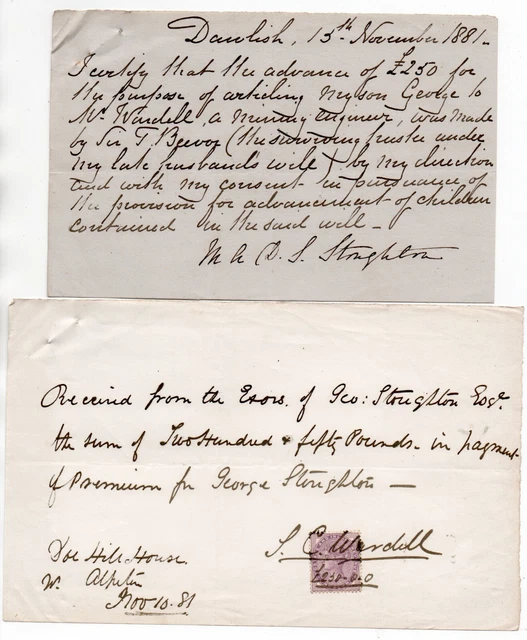 Dawlish, 15th November 1881-
I certify that the advance of £250 for
the purpose of articling my son George to
Mr Wardell, a mining engineer, was made
by Sir T. Beevor (the surviving trustee under
my late husband's will) by my direction
and with my consent in pursuance of
the provision for advancement of children
contained in the said will -
M A D. S. Stoughton
Received from the Exors. of Geo: Stoughton Esqr.
the sum of Two Hundred & fifty Pounds - in payment
of Premium for George Stoughton -
S. C. Wardell
£250-0-0
Doe Hill House
Nr. Alfreton
Nov 10. 81